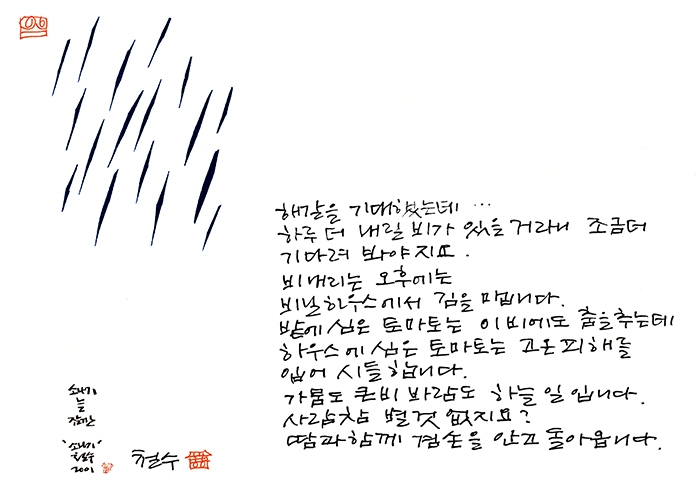 해갈을 기대했는데 …
하루 더 내릴 비가 있을 거라니 조금더
기다려 봐야지요.
비내리는 오후에는
비닐하우스에서 김을 맵니다.
밭에 심은 토마토는 이 비에도 춤을추는데
하우스에 심은 토마토는 고온피해를
입어 시들합니다.
가뭄도 큰비 바람도 하늘 일 입니다.
사람참 별것 없지요?
땀과함께 겸손을 안고 돌아옵니다.
소나기
는
잠깐
'소나기'
철수
2001
철수